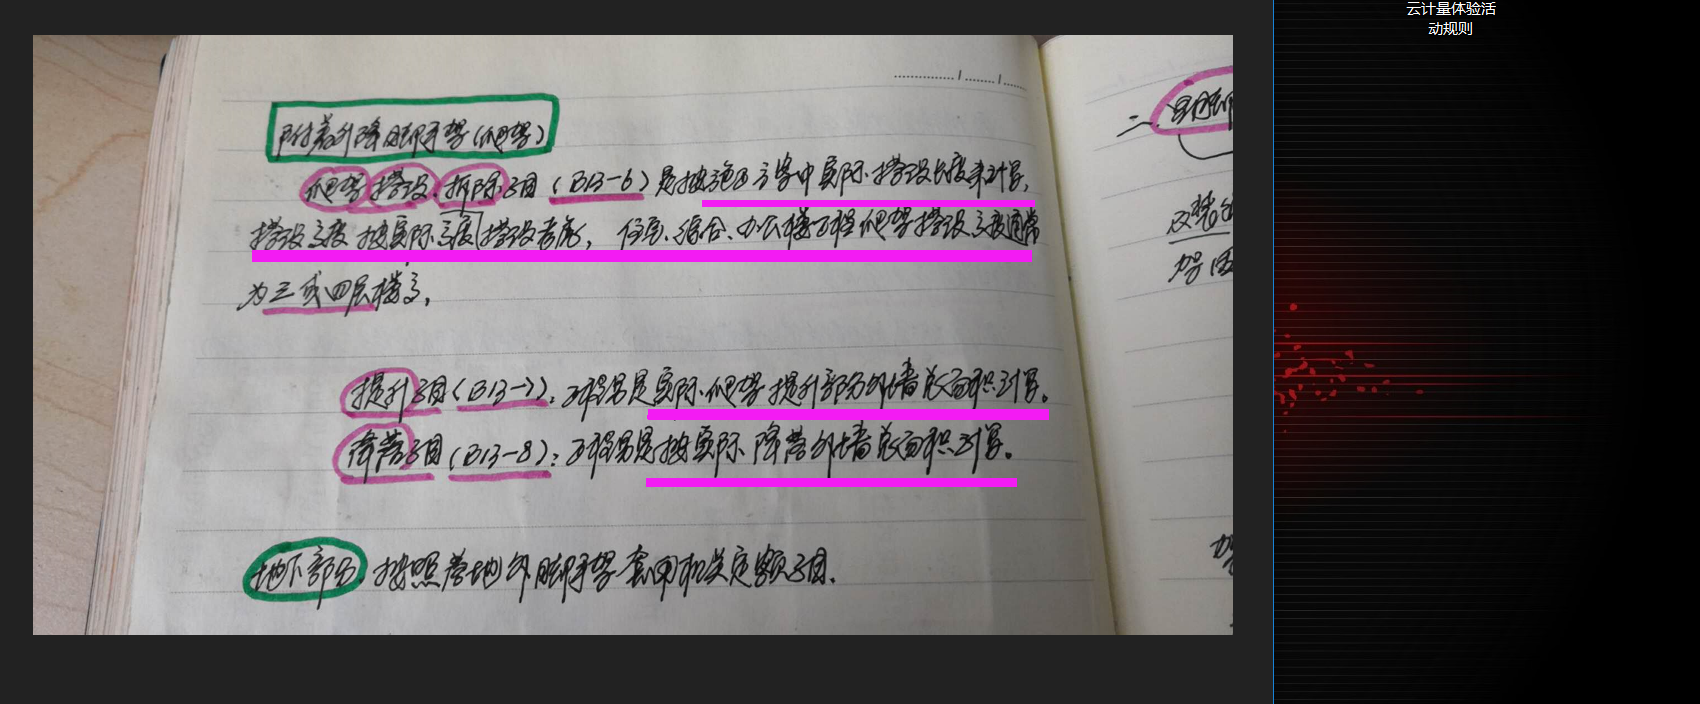 附着升降脚手架(爬架)
爬架搭设、拆除子目(B13-6)是按施工方案中实际搭设长度来计算,
搭设高度按实际高度搭设考虑,住宅、综合、办公楼工程爬架搭设高度通常
为三或四层楼高,
提升子目(B13-7):工程量是实际爬架提升部分外墙总面积计算。
降落子目(B13-8):工程量是按实际降落外墙总面积计算。
地下部分,按照落地外脚手架套用相关定额子目.
二、
云计量体验活
动规则